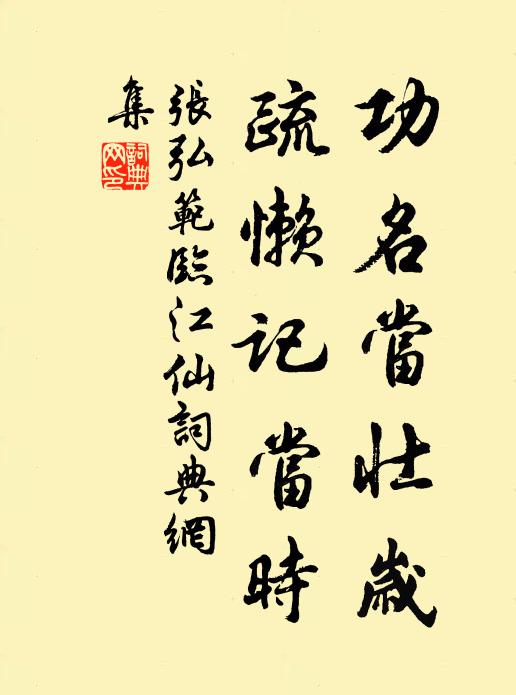 功名當壯歲
疏懶記當時
張弘範臨江仙詞典網
集
詞典
网印